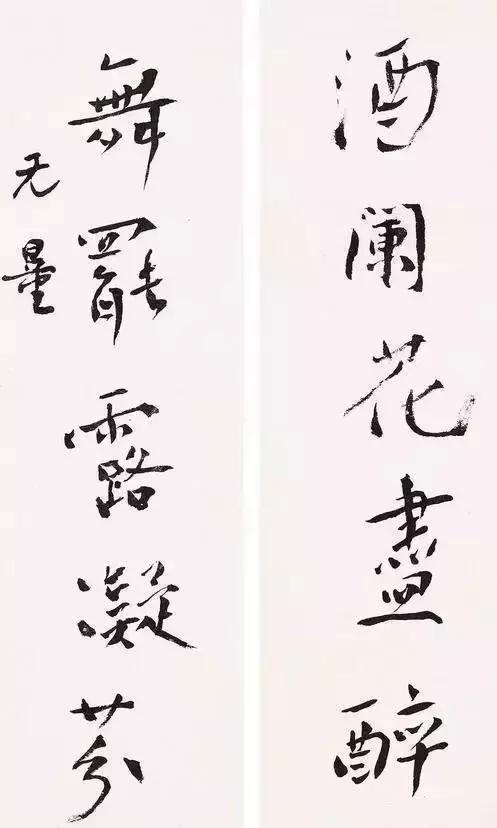 酒阑花尽醉
舞罢露凝芬
无量